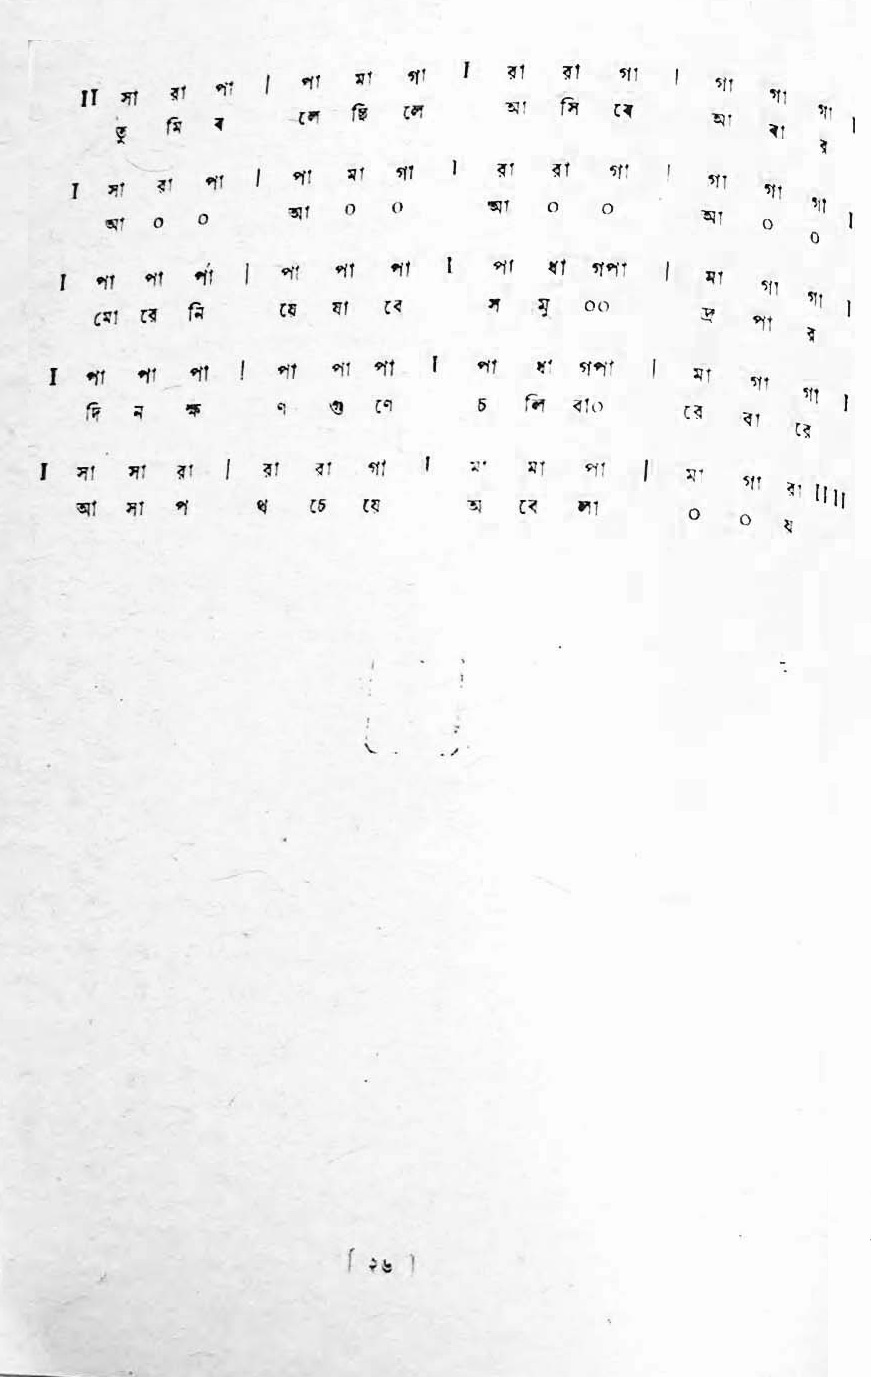 II সা রা পা | পা মা গা I রা রা গা | গা গা গা |
তু মি ৰ লে ছি লে আ সি ৰে আ ৰা র
I সা রা পা | পা মা গা I রা রা গা | গা গা গা |
আ ০ ০ আ ০ ০ আ ০ ০ আ ০ ০
I পা পা পা | পা পা পা I পা ধা গপা | মা গা গা |
মো রে নি যে যা বে স মু ০০ দ্র পা র
I পা পা পা | পা পা পা I পা ধা গপা | মা গা গা I
দি ন ক্ষ ণ গু ণে চ লি বা০ রে বা রে
I সা সা রা | রা রা গা I মা মা পা | মা গা রা IIII
আ সা প থ চে য়ে অ বে লা ০ ০ য
[ ২৬ ]